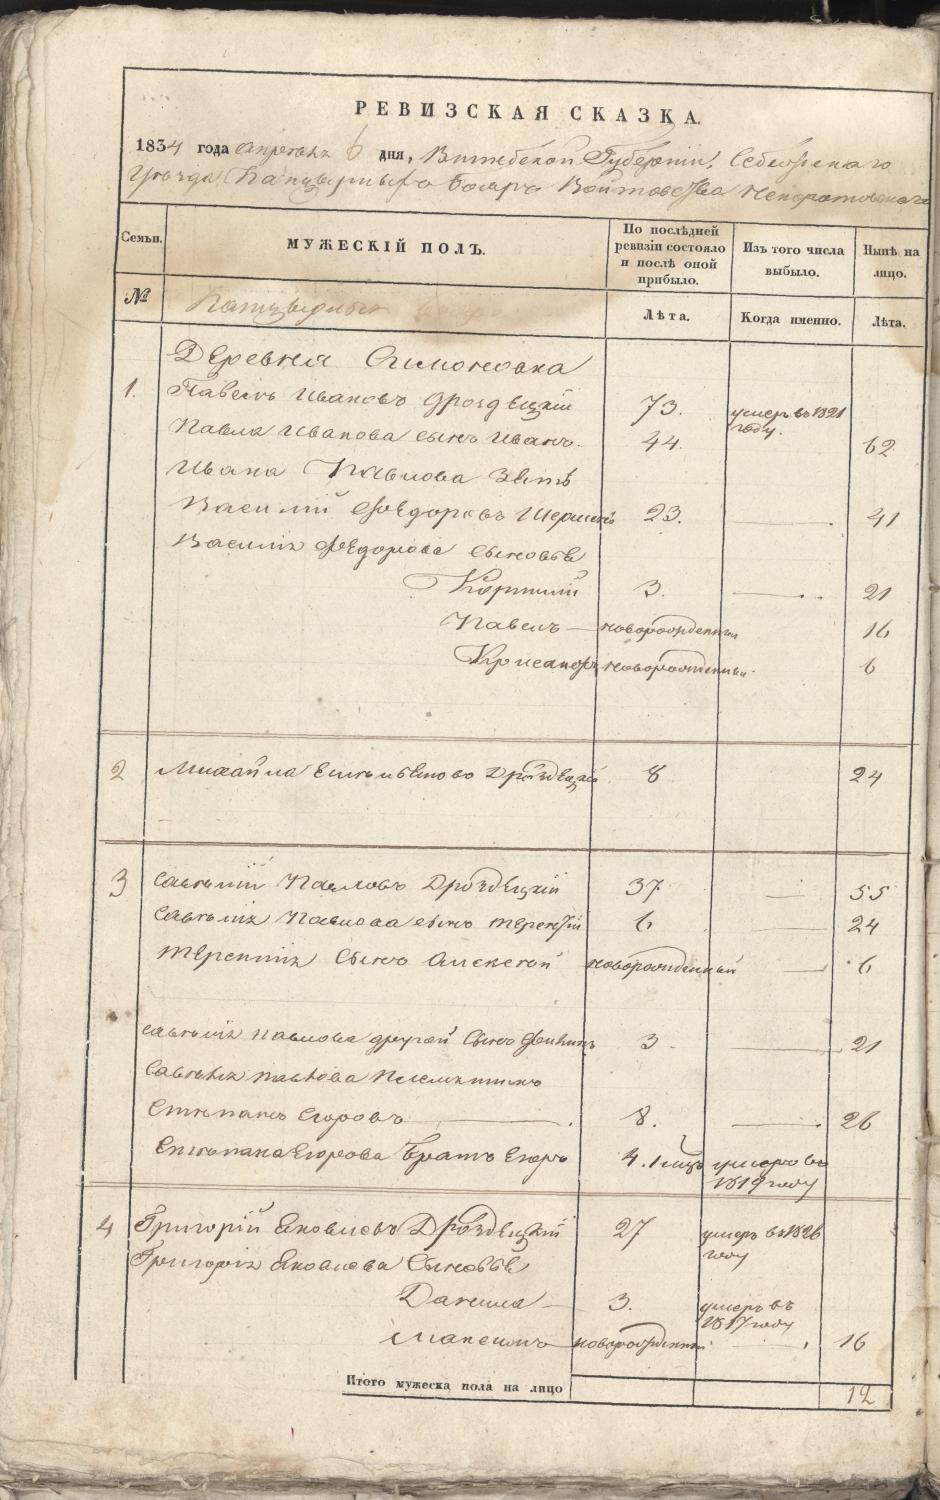 РЕВИЗСКАЯ СКАЗКА.
1834 года апреля 6 дня, Витебской Губернии, Себежскаго
уезда Панцырныхъ бояръ Войтовства Непоротовскаго
Семьи.
МУЖЕСКІЙ ПОЛЪ.
По послѣдней ревизіи состояло и послѣ оной прибыло.
Изъ того числа выбыло.
Нынѣ на лицо.
№
Панцырныхъ бояръ
Лѣта.
Когда именно.
Лѣта.
Деревня Симоновка
1. Павелъ Ивановъ Дроздецкій 73. умеръ въ 1821 году.
Павла Иванова сынъ Иванъ 44. 62
Ивана Павлова Зять
Василій Федоровъ 23. — 41
Василія Федорова сыновья
3. — 21
Павелъ — новорожденный 16
новорожденный 6
2 Михайла Дроздецкій 8 24
3 Савелій Павловъ Дроздецкій 37 — 55
Савелія Павлова сынъ Терентій 6 — 24
Терентія сынъ Алексей новорожденный — 6
Савелія Павлова другой сынъ Филипъ 3 — 21
Савелія Павлова племянникъ
Степанъ Егоровъ — 8. — 26
Степана Егорова братъ Егоръ 4. умеръ въ 1819 году
4 Григорій Яковлевъ Дроздецкій 27 умеръ въ 1826 году
Григорія Яковлева сыновья
Данила — 3. умеръ въ 1817 году
Максимъ новорожденный — 16
Итого мужеска пола на лицо 12